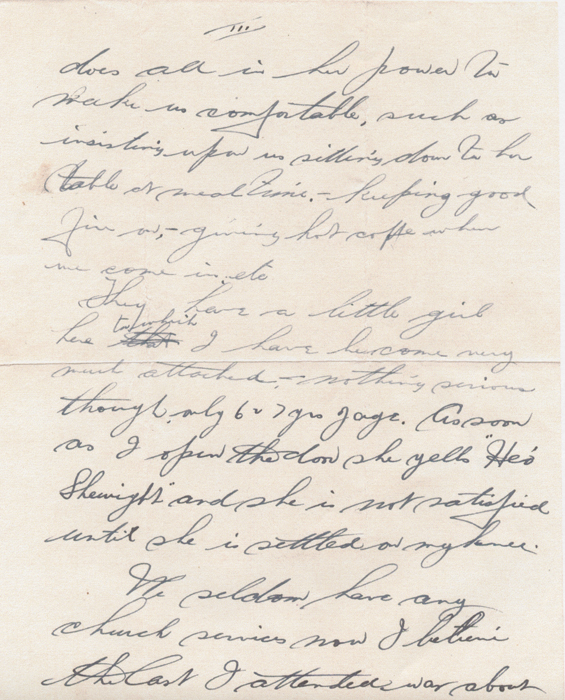 III
does all in her power to
make us comfortable, such as
insisting upon us sitting down to her
table at meal time. - keeping good
fire on, - giving hot coffe when
we come in. etc
They have a little girl
to which
here that I have become very
much attached, - nothing serious
though, only 6 or 7 yrs of age. As soon
as I open the door she yells "Hes
and she is not satisfied
until she is settled on my knee.
We seldom have any
church services now I believe
the last I attended was about